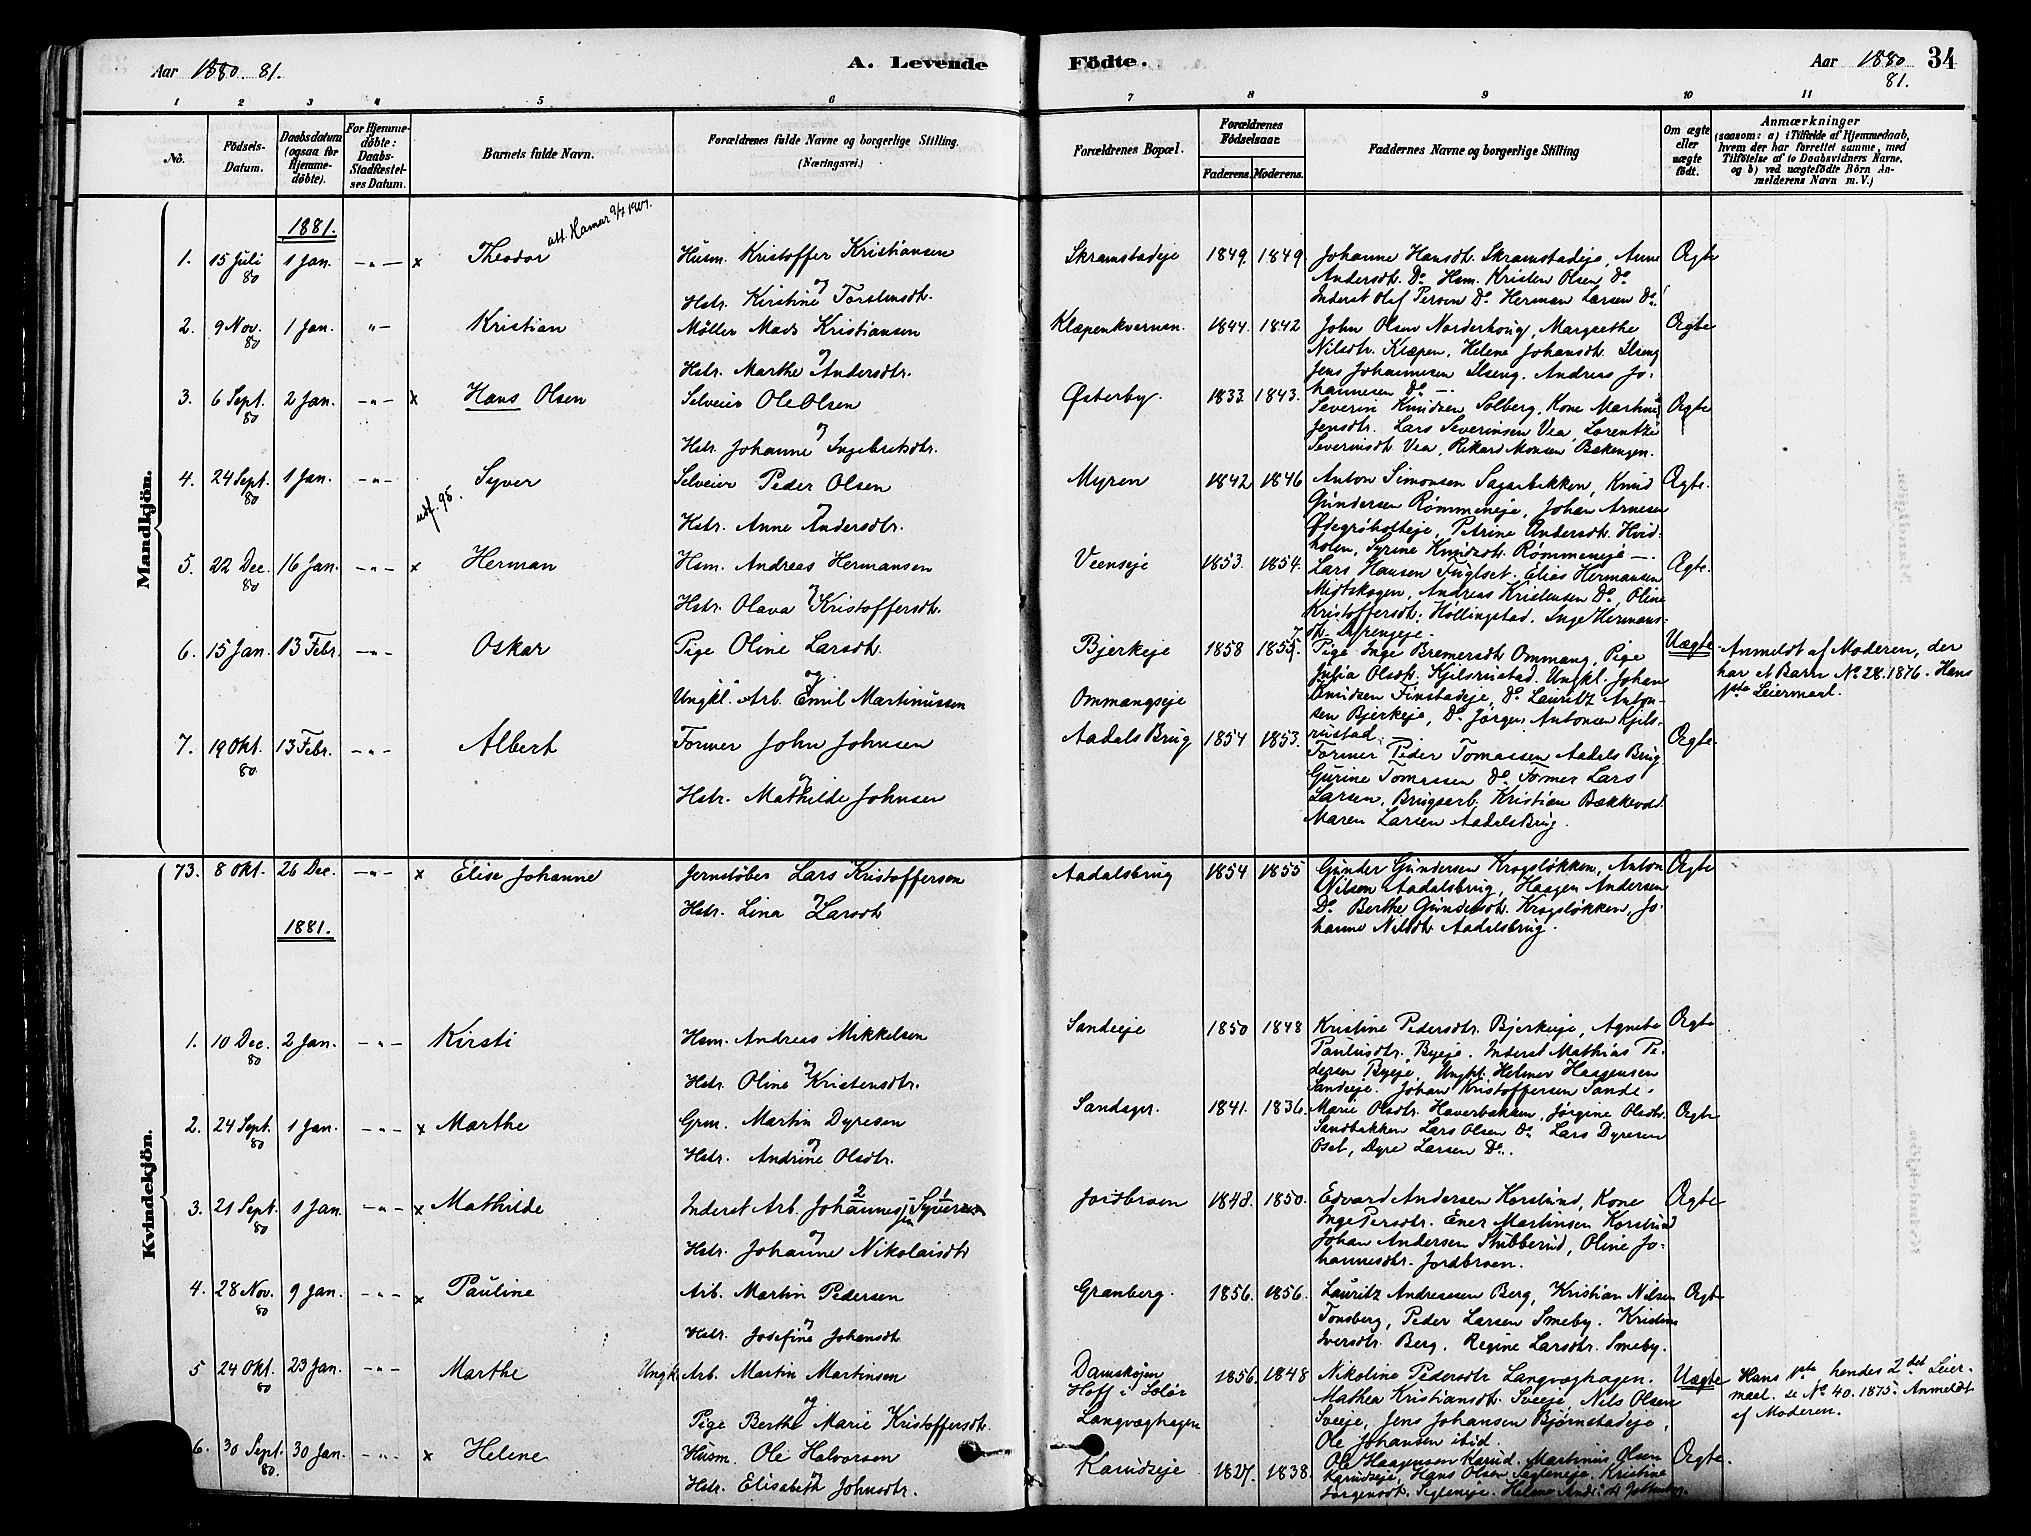 Aar 1880. 81.
A. Levende
Födte.
Aar 1880 81.
34
1 2 3 4 5 6 7 8 9 10 11
No.
Födsels-Datum.
Daabsdatum (ogsaa for Hjemme-döbte).
For Hjemme-döbte: Daabs-Stadfæstel-ses Datum.
Barnets fulde Navn.
Forældrenes fulde Navne og borgerlige Stilling.
(Næringsvei.)
Forældrenes Bopæl.
Forældrenes Födselsaar.
Faderens. Moderens.
Faddernes Navne og borgerlige Stilling
Om ægte eller uægte födt.
Anmærkninger
(saasom: a) i Tilfælde af Hjemmedaab,
hvem der har forrettet samme, med
Tilföielse af to Daabsvidners Navne,
og b) ved uægtefödte Börn An-
melderens Navn m. V.)
Mandkjön.
1881.
1. 15 Juli 80 1 Jan. -"- x Theodor att. Hamar 9/7 1901.
Husm. Kristoffer Kristiansen
og
Hstr. Kirstine Torstensdt.
Skramstadeje 1849. 1849.
Johanne Hansdt. Skramstadeje, Anne
Andersdt. Do. Hsm. Kristen Olsen Do.
Inderst Olaf Persen Do. Herman Larsen Do.
Ægte
2. 9 Nov. 80 1 Jan. "- Kristian
Møller Mads Kristiansen
og
Hstr. Marthe Andersdtr.
Klæpenkvernen. 1844. 1842
John Olsen Norderhoug, Margrethe
Nilsdtr. Klæpen, Helene Johansdt. Ilseng
Jens Johannesen Ilseng. Andreas Jo-
hannesen Do. -
Ægte
3. 6 Sept. 80 2 Jan. -"- x Hans Olsen
Selveier Ole Olsen
og
Hstr. Johanne Ingebretsdtr.
Østerby. 1833. 1843.
Severin Knudsen Solberg, Kone Martine
Jensdtr. Lars Severinsen Vea, Lorentze
Severinsdt. Vea, Rikard Monsen Bakengen.
Ægte
4. 24 Sept. 80 1 Jan. -"- utf. 95. Syver
Selveier Peder Olsen
og
Hstr. Anne Andersdtr.
Myren 1842 1846
Anton Simonsen Sagerbakken, Knud
Gundersen Rømmeneje, Johan Arnesen
Ødegrøholteje, Petrine Andersdt. Hvid-
holen, Syrine Knudsdt. Rømmeneje -.
Ægte.
5. 22 Dec. 80 16 Jan. -"- x Herman
Hsm. Andreas Hermansen
og
Hstr. Olava Kristoffersdt.
Veenseje 1853. 1854.
Lars Hansen Fuglset. Elias Hermansen
Midtskogen, Andreas Kristensen Do. Oline
Kristoffersdt. Hollingstad. Inge Hermans-
dt. Dyrengeje.
Ægte.
6. 15 Jan. 13 Febr. -"- Oskar
Pige Oline Larsdt.
og
Ungkl. Arb. Emil Martinussen
Bjerkeje 1858 1857
Ommangseje
Pige Inge Bremersdt. Ommang, Pige
Julia Olsdt. Kjelsrustad. Ungkl. Johan
Knudsen Finstadeje, Do. Lauritz Anton-
sen Bjerkeje, Do. Jørgen Antonsen Kjels-
rustad. -
Uægte.
Anmeldt af Moderen, der
har et Barn No. 28. 1876. Hans
1ste Leiermaal.
7. 19 Okt. 80. 13 Febr. -"- Albert
Former John Johnsen
og
Hstr. Mathilde Johnsen
Aadals Brug 1854 1853.
Former Peder Tomassen Aadals Brug.
Gurine Tomassen Do. Former Lars
Larsen, Brugsarb. Kristian Bækkevold.
Maren Larsen Aadals Brug.
Ægte.
Kvindekjön.
73. 8 Okt. 26 Dec. -"- x Elise Johanne
Jernstøber Lars Kristoffersen
og
Hstr. Lina Larsdt.
Aadalsbrug 1854 1855
Gunder Gundersen Krogsløkken, Anton
Nilsen Aadalsbrug, Haagen Andersen
Do. Berthe Gundersdt. Krogsløkken, Jo-
hanne Nilsdt. Aadalsbrug.
Ægte
1881.
1. 10 Dec. 80 2 Jan. -"- Kirsti
Hsm. Andreas Mikkelsen
og
Hstr. Oline Kristensdtr.
Sandeeje 1850 1848
Kristine Pedersdtr. Bjerkeje, Agnete
Paulusdtr. Byeje. Inderst Mathias Pe-
dersen Byeje, Ungkl. Helmer Haagensen
Sandeeje. Johan Kristoffersen Sande.
Ægte
2. 24 Sept. 80 1 Jan. -"- x Marthe
Grm. Martin Dyresen
og
Hstr. Andrine Olsdtr.
Sandager. 1841. 1836.
Marie Olsdtr. Haverbakken, Jørgine Olsdtr.
Sandbakken Lars Olsen Do. Lars Dyresen
Oset, Dyre Larsen Do.
Ægte
3. 21 Sept. 80 1 Jan. -"- x Mathilde
Inderst Arb. Johannes Syversen
og
Hstr. Johanne Nikolaisdt
Jordbroen 1848. 1850.
Edvard Andersen Korslund, Kone
Inge Persdtr. Ener Martinsen Korslund
Johan Andersen Stubberud, Oline Jo-
hannesdtr. Jordbroen.
Ægte
4. 28 Nov. 80 9 Jan. -"- x Pauline
Arb. Martin Pedersen
og
Hstr. Josefine Johansdt
Granberg. 1856. 1856.
Lauritz Andreasen Berg, Kristian Nilsen
Tonsberg, Peder Larsen Smeby. Kristine
Iversdtr. Berg, Regine Larsdtr. Smeby.
Ægte
5 24 Okt. 80 23 Jan. -"- Marthe
Ungk. Arb. Martin Martinsen
og
Pige Berthe Marie Kristoffersdt.
Damskojen
Hoff i Solør
Langvæghagen
1856. 1848
Nikoline Pedersdtr Langvæghagen.
Mathea Kristiansdt. Sveeje, Nils Olsen
Sveeje, Jens Johansen Bjørnstadeje,
Ole Johansen ibid.
Uægte
Hans 1ste hendes 2det Leier-
maal. se No. 40. 1875. Anmeldt
af Moderen.
6. 30 Sept. 80. 30 Jan. -"- x Helene
Husm. Ole Halvorsen
og
Hstr. Elisabeth Johnsdtr.
Karudseje 1827. 1838.
Ole Haagensen Karud. Martinus Olsen
Karudseje, Hans Olsen Sigleneje. Kristine
Jørgensdt. Sigleneje. Helene
Ægte.